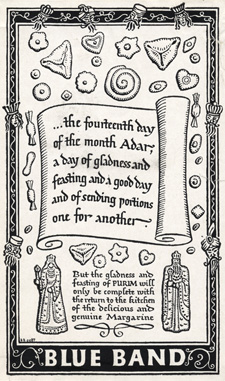 ...the fourteenth day
of the month Adar,
a day of gladness and
feasting and a good day
and of sending portions
one for another.
But the gladness and
feasting of PURIM will
only be complete with
the return to the kitchen
of the delicious and
genuine Margarine
BLUE BAND